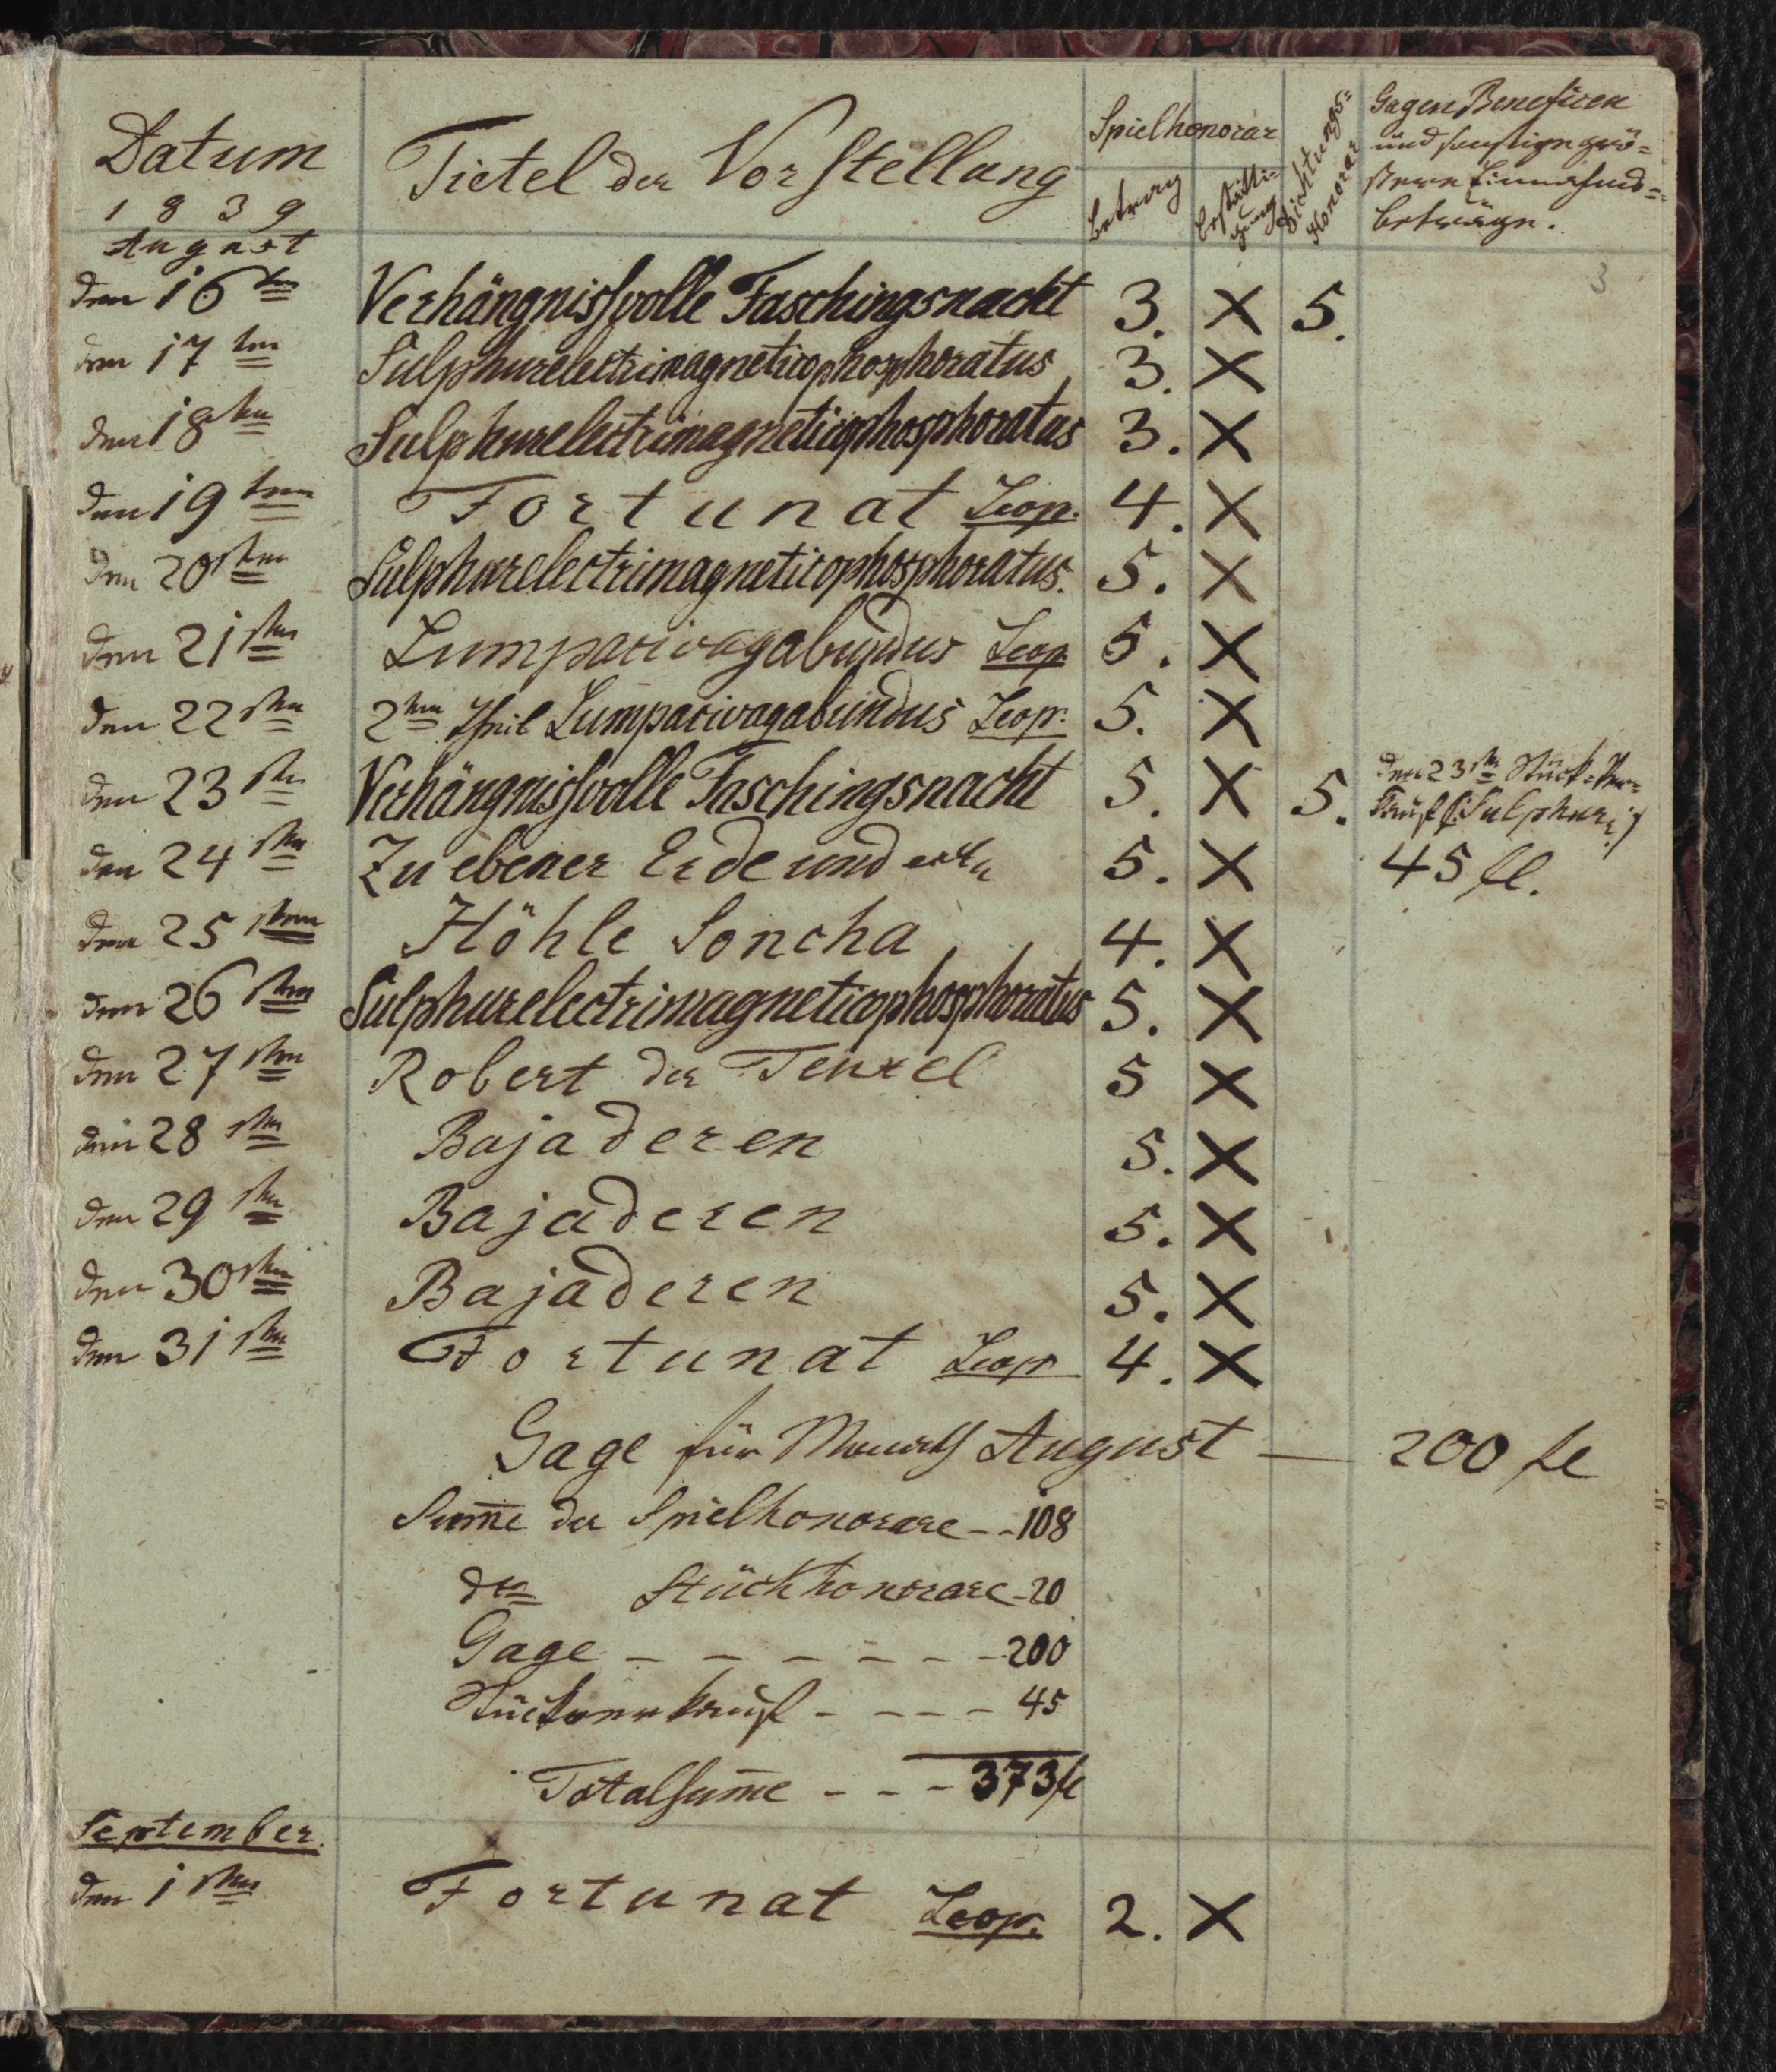 Datum
1839
August
Tietel der Vorstellung
Spielhonorar
Betrag
Bestätti=
gung
Dichtungs=
Honorar
Gagen Beneficen
und sonstige grö=
ßere Einnahms=
beträge.
3
den 16ten Verhängnissvolle Faschingsnacht 3. X 5.
den 17ten Sulphurelectrimagneticophosphoratus 3. X
den 18ten Sulphurelectrimagneticophosphoratus 3. X
den 19ten Fortunat Leop. 4. X
den 20sten Sulphurelectrimagneticophosphoratus. 5. X
den 21sten Lumpacivagabundus Leop 5. X
den 22sten 2ter Theil Lumpacivagabundus Leop. 5. X
den 23sten Verhängnissvolle Faschingsnacht 5. X 5. den 23sten Stück=Ver=
kauf (:Sulphur:)
den 24sten Zu ebener Erde und 5. X 45 fl.
den 25sten Höhle Soncha 4. X
den 26sten Sulphurelectrimagneticophosphoratus 5. X
den 27sten Robert der Teuxel 5 X
den 28sten Bajaderen 5. X
den 29sten Bajaderen 5. X
den 30sten Bajaderen 5. X
den 31sten Fortunat Leop 4. X
Gage für Monath August — 200 fl
Sum̅e der Spielhonorare - - 108
der Stückhonorare - 20
Gage - - - - - - - 200
Stückverkauf - - - - 45
Totalsum̅e - - - 373 fl
September.
den 1sten Fortunat Leop. 2. X